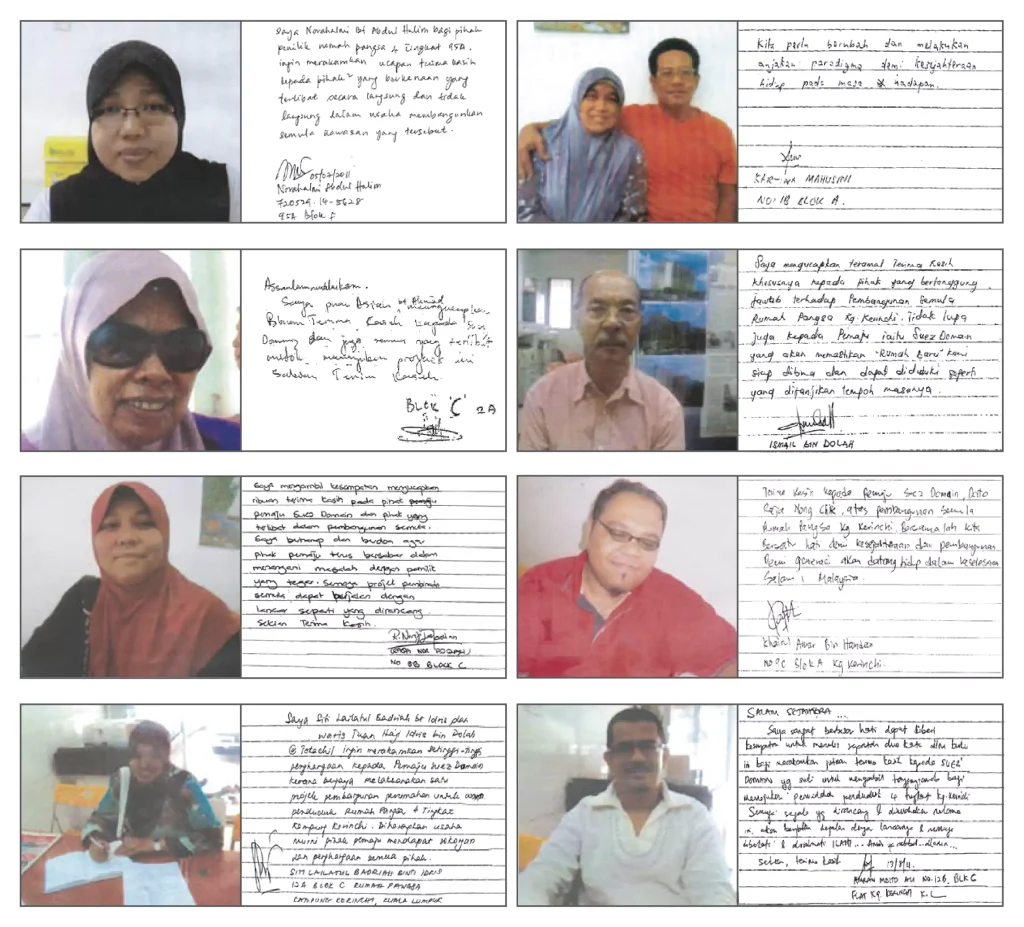 Saya Norahalani bt Abdul Halim bagi pihak
pemilik rumah pangsa 4 Tingkat 95A.
ingin merakamkan ucapan terima kasih
kepada pihak² yang berkenaan yang
terlibat secara langsung dan tidak
langsung dalam usaha membangunkan
semula kawasan yang tersebut.
05/02/2011
Norahalani Abdul Halim
720529-14-5628
95A Blok F
Kita perlu berubah dan melakukan
anjakan paradigma demi kesejahteraan
hidup pada masa hadapan.
MAHUSINI
NO: 1B BLOK A.
Assalammualaikom.
Saya puan Asiah bt Ahmad
mengucapkan
Terima Kaseh kepada Suez
Domain dan juga semua yang terlibat
untuk menjayakan projek ini
Sekian Terima Kaseh
BLOK 'C' 2A
Saya mengucapkan teramat Terima Kasih
khususnya kepada pihak yang bertanggung
jawab terhadap Pembangunan Semula
Rumah Pangsa Kg. Kerinchi. Tidak lupa
juga kepada Pemaju iaitu Suez Domain
yang akan memastikan "Rumah Baru" kami
siap dibina dan dapat diduduki seperti
yang dijanjikan tempoh masanya.
ISMAIL BIN DOLAH
Saya mengambil kesempatan mengucapkan
ribuan terima kasih pada pihak pemaju
pemaju Suez Domain dan pihak yang
terlibat dalam pembangunan semula.
Saya berharap dan berdoa agar
pihak pemaju terus bersabar dalam
menangani masalah dengan pemilik
yang tegar. Semoga projek pembinaan
semula dapat berjalan dengan
lancar seperti yang dirancang.
Sekian Terima Kasih.
NO 8B BLOCK C
Terima Kasih kepada Pemaju Suez Domain, Dato
Raja Nong Chik, atas pembangunan semula
Rumah Pangsa Kg Kerinchi. Bersamalah kita
Bersatu hati demi kesejahteraan dan pembangunan
Demi generasi akan datang hidup dalam keselesaan
Salam 1 Malaysia.
Khairul Anuar Bin
No 9C Blok A Kg Kerinchi.
Saya Siti Lailatul Badriah bt Idris dan
waris Tuan Haji Idris bin Dolah
ingin merakamkan setinggi-tinggi
penghargaan kepada Pemaju Suez Domain
kerana berjaya melaksanakan satu
projek pembangunan perumahan untuk
penduduk Rumah Pangsa 4 Tingkat
Kampung Kerinchi. Diharapkan usaha
murni pihak pemaju mendapat sokongan
dan penghargaan semua pihak.
SITI LAILATUL BADRIAH BINTI IDRIS
12A BLOK C RUMAH PANGSA
KAMPUNG KERINCHI, KUALA LUMPUR
SALAM SEJAHTERA ...
Saya sangat berbesar hati dapat diberi
kesempatan untuk menulis sepatah dua kata
ini bagi merakamkan jutaan terima kasih kepada SUEZ
DOMAIN yg sudi untuk mengambil tanggungjawab bagi
penduduk 4 tingkat kg. kerinchi
Semoga segala yg dirancang & diusahakan selama
ini, akan berjalan dengan lancarnya
Sekian, terima kasih
NO. 12B, BLK C
FLAT KG. KERINCHI K.L